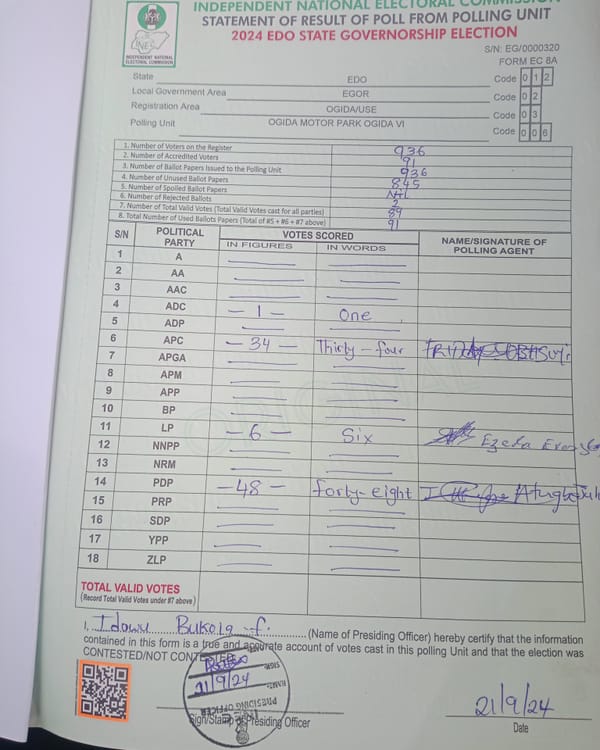 INDEPENDENT NATIONAL ELECTORAL COMMISSION
STATEMENT OF RESULT OF POLL FROM POLLING UNIT
2024 EDO STATE GOVERNORSHIP ELECTION
INEC
INDEPENDENT NATIONAL ELECTORAL COMMISSION
S/N: EG/0000320
FORM EC 8A
State EDO Code 0 1 2
Local Government Area EGOR Code 0 2
Registration Area OGIDA/USE Code 0 3
Polling Unit OGIDA MOTOR PARK OGIDA VI Code 0 0 6
1. Number of Voters on the Register 936
2. Number of Accredited Voters 91
3. Number of Ballot Papers Issued to the Polling Unit 936
4. Number of Unused Ballot Papers 845
5. Number of Spoiled Ballot Papers Nil
6. Number of Rejected Ballots 2
7. Number of Total Valid Votes (Total Valid Votes cast for all parties) 89
8. Total Number of Used Ballots Papers (Total of #5 + #6 + #7 above) 91
S/N POLITICAL PARTY VOTES SCORED NAME/SIGNATURE OF POLLING AGENT
IN FIGURES IN WORDS
1 A
2 AA
3 AAC
4 ADC - 1 - One
5 ADP
6 APC - 34 - Thirty-four
7 APGA
8 APM
9 APP
10 BP
11 LP - 6 - Six
12 NNPP
13 NRM
14 PDP - 48 - forty-eight
15 PRP
16 SDP
17 YPP
18 ZLP
TOTAL VALID VOTES
(Record Total Valid Votes under #7 above)
I, Idowu Bukola f. (Name of Presiding Officer) hereby certify that the information
contained in this form is a true and accurate account of votes cast in this polling Unit and that the election was
CONTESTED/NOT CONTESTED
21/9/24
PRESIDING OFFICER
Sign/Stamp of Presiding Officer
21/9/24
Date